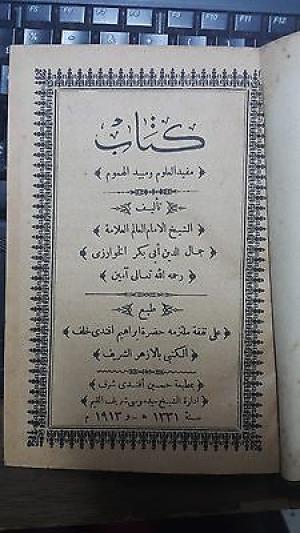 كتاب
مفيد العلوم ومبيد الهموم
تأليف
الشيخ الامام العالم العلامة
جمال الدين أبي بكر الخوارزمي
رحمه الله تعالى آمين
طبع
على نفقة ملتزمه حضرة ابراهيم افندى خلف
الكتبي بالازهر الشريف
بمطبعة حسين أفندى شرف
ادارة الشيخ
سنة ١٣٣١ هـ - و ١٩١٣ م